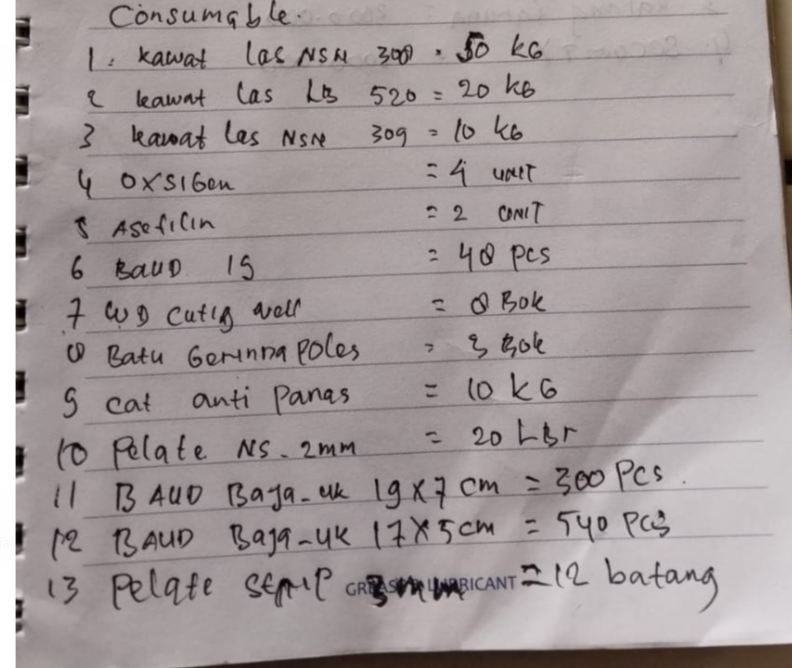 Consumable.
1. kawat las NSN 308 = 50 kG
2 kawat las LB 520 = 20 kG
3 kawat las NSN 309 = 10 kG
4 OXSIGen = 4 unIT
5 Asefilin = 2 UNIT
6 BAUD 19 = 48 Pcs
7 WD Cuting well = 8 Bok
8 Batu Gerinnda Poles = 3 Bok
9 cat anti Panas = 10 kG
10 Pelate NS - 2mm = 20 LBr
11 BAUD Baja-uk 19X7 cm = 300 Pcs.
12 BAUD Baja-uk 17X5cm = 540 Pcs
13 Pelate strip 3mm = 12 batang
GREASE LUBRICANT